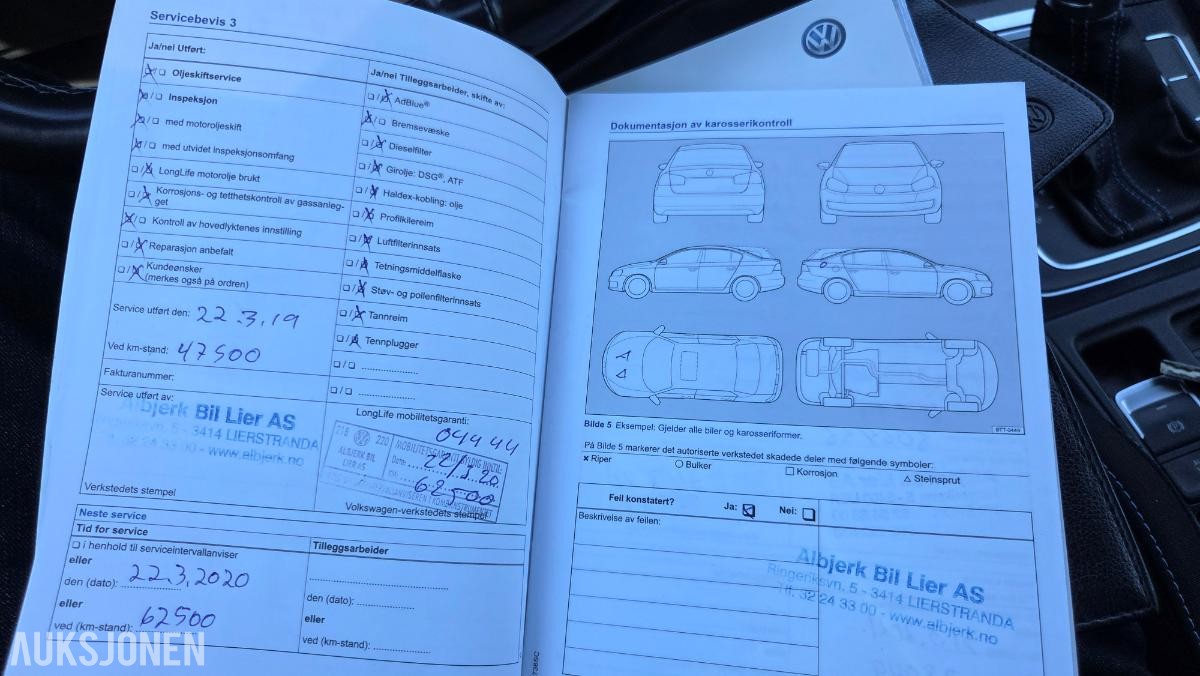 Servicebevis 3
Ja/nei Utført:
Oljeskiftservice
Inspeksjon
med motoroljeskift
med utvidet inspeksjonsomfang
LongLife motorolje brukt
Korrosjons- og tetthetskontroll av gassanleg-
get
Kontroll av hovedlyktenes innstilling
Reparasjon anbefalt
Kundeønsker
(merkes også på ordren)
Service utført den: 22.3.19
Ved km-stand: 47500
Fakturanummer:
Service utført av:
Albjerk Bil Lier AS
Ringeriksvn. 5 - 3414 LIERSTRANDA
32 24 33 00 - www.albjerk.no
Verkstedets stempel
Ja/nei Tilleggsarbeider, skifte av:
AdBlue®
Bremsevæske
Dieselfilter
Girolje: DSG®, ATF
Haldex-kobling: olje
Profilkilereim
Luftfilterinnsats
Tetningsmiddelflaske
Støv- og pollenfilterinnsats
Tannreim
Tennplugger
LongLife mobilitetsgaranti:
218 220
ALBJERK BIL
LIER AS
MOBILITETSGARANTI GYLDIG INNTIL:
Dato:
62500
Volkswagen-verkstedets stempel
Neste service
Tid for service
i henhold til serviceintervallanviser
eller
den (dato): 22.3.2020
eller
ved (km-stand): 62500
Tilleggsarbeider
den (dato):
eller
ved (km-stand):
Dokumentasjon av karosserikontroll
BTT-0449
Bilde 5 Eksempel: Gjelder alle biler og karosseriformer.
På Bilde 5 markerer det autoriserte verkstedet skadede deler med følgende symboler:
Riper
Bulker
Korrosjon
Steinsprut
Feil konstatert? Ja: Nei:
Beskrivelse av feilen:
Albjerk Bil Lier AS
Ringeriksvn. 5 - 3414 LIERSTRANDA
Tlf. 32 24 33 00 - www.albjerk.no
AUKSJONEN